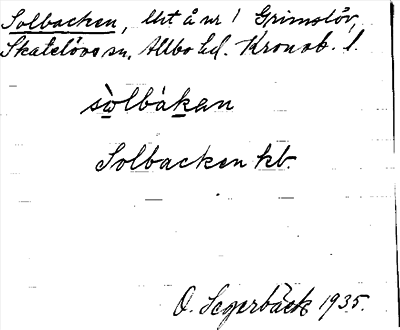 Solbacken, lht å nr 1 Grimslöv,
Skatelövs sn, Allbo hd. Kronob. l.
sò̀lbàkan
Solbacken kb.
O. Segerbäck 1935.